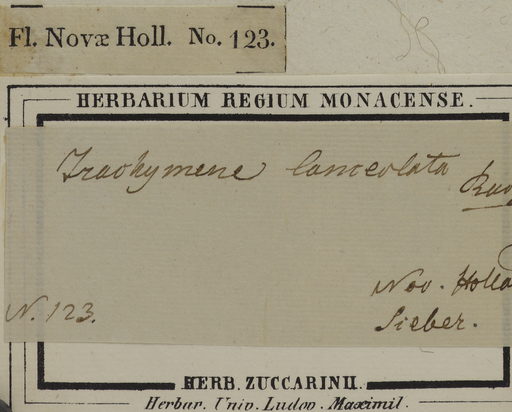 Fl. Novæ Holl. No. 123.
HERBARIUM REGIUM MONACENSE.
Trachymene lanceolata
Nov. Holla
N. 123.
Sieber.
HERB. ZUCCARINII.
Herbar. Univ. Ludov. Maximil.